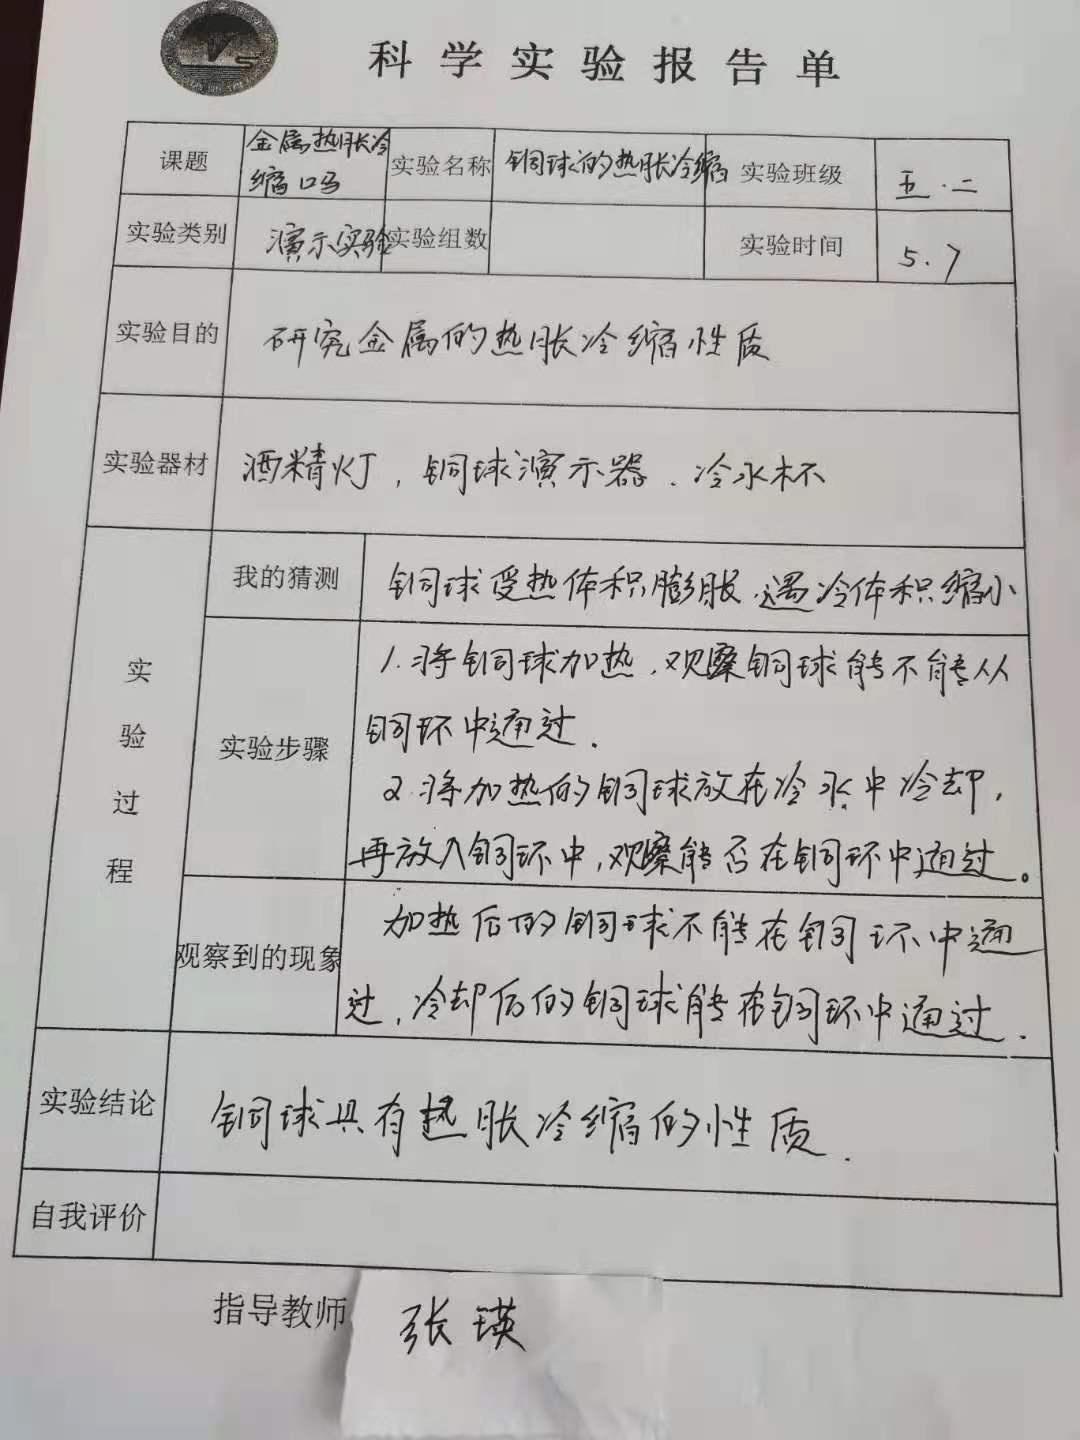 科学实验报告单
课题 金属热胀冷缩吗 实验名称 铜球的热胀冷缩 实验班级 五.二
实验类别 演示实验 实验组数 实验时间 5.7
实验目的 研究金属的热胀冷缩性质
实验器材 酒精灯，铜球演示器.冷水杯
实验过程
我的猜测 铜球受热体积膨胀.遇冷体积缩小
实验步骤
1.将铜球加热.观察铜球能不能从
铜环中通过.
2.将加热的铜球放在冷水中冷却，
再放入铜环中，观察能否在铜环中通过。
观察到的现象
加热后的铜球不能在铜环中通
过，冷却后的铜球能在铜环中通过.
实验结论 铜球具有热胀冷缩的性质.
自我评价
指导教师 张瑛